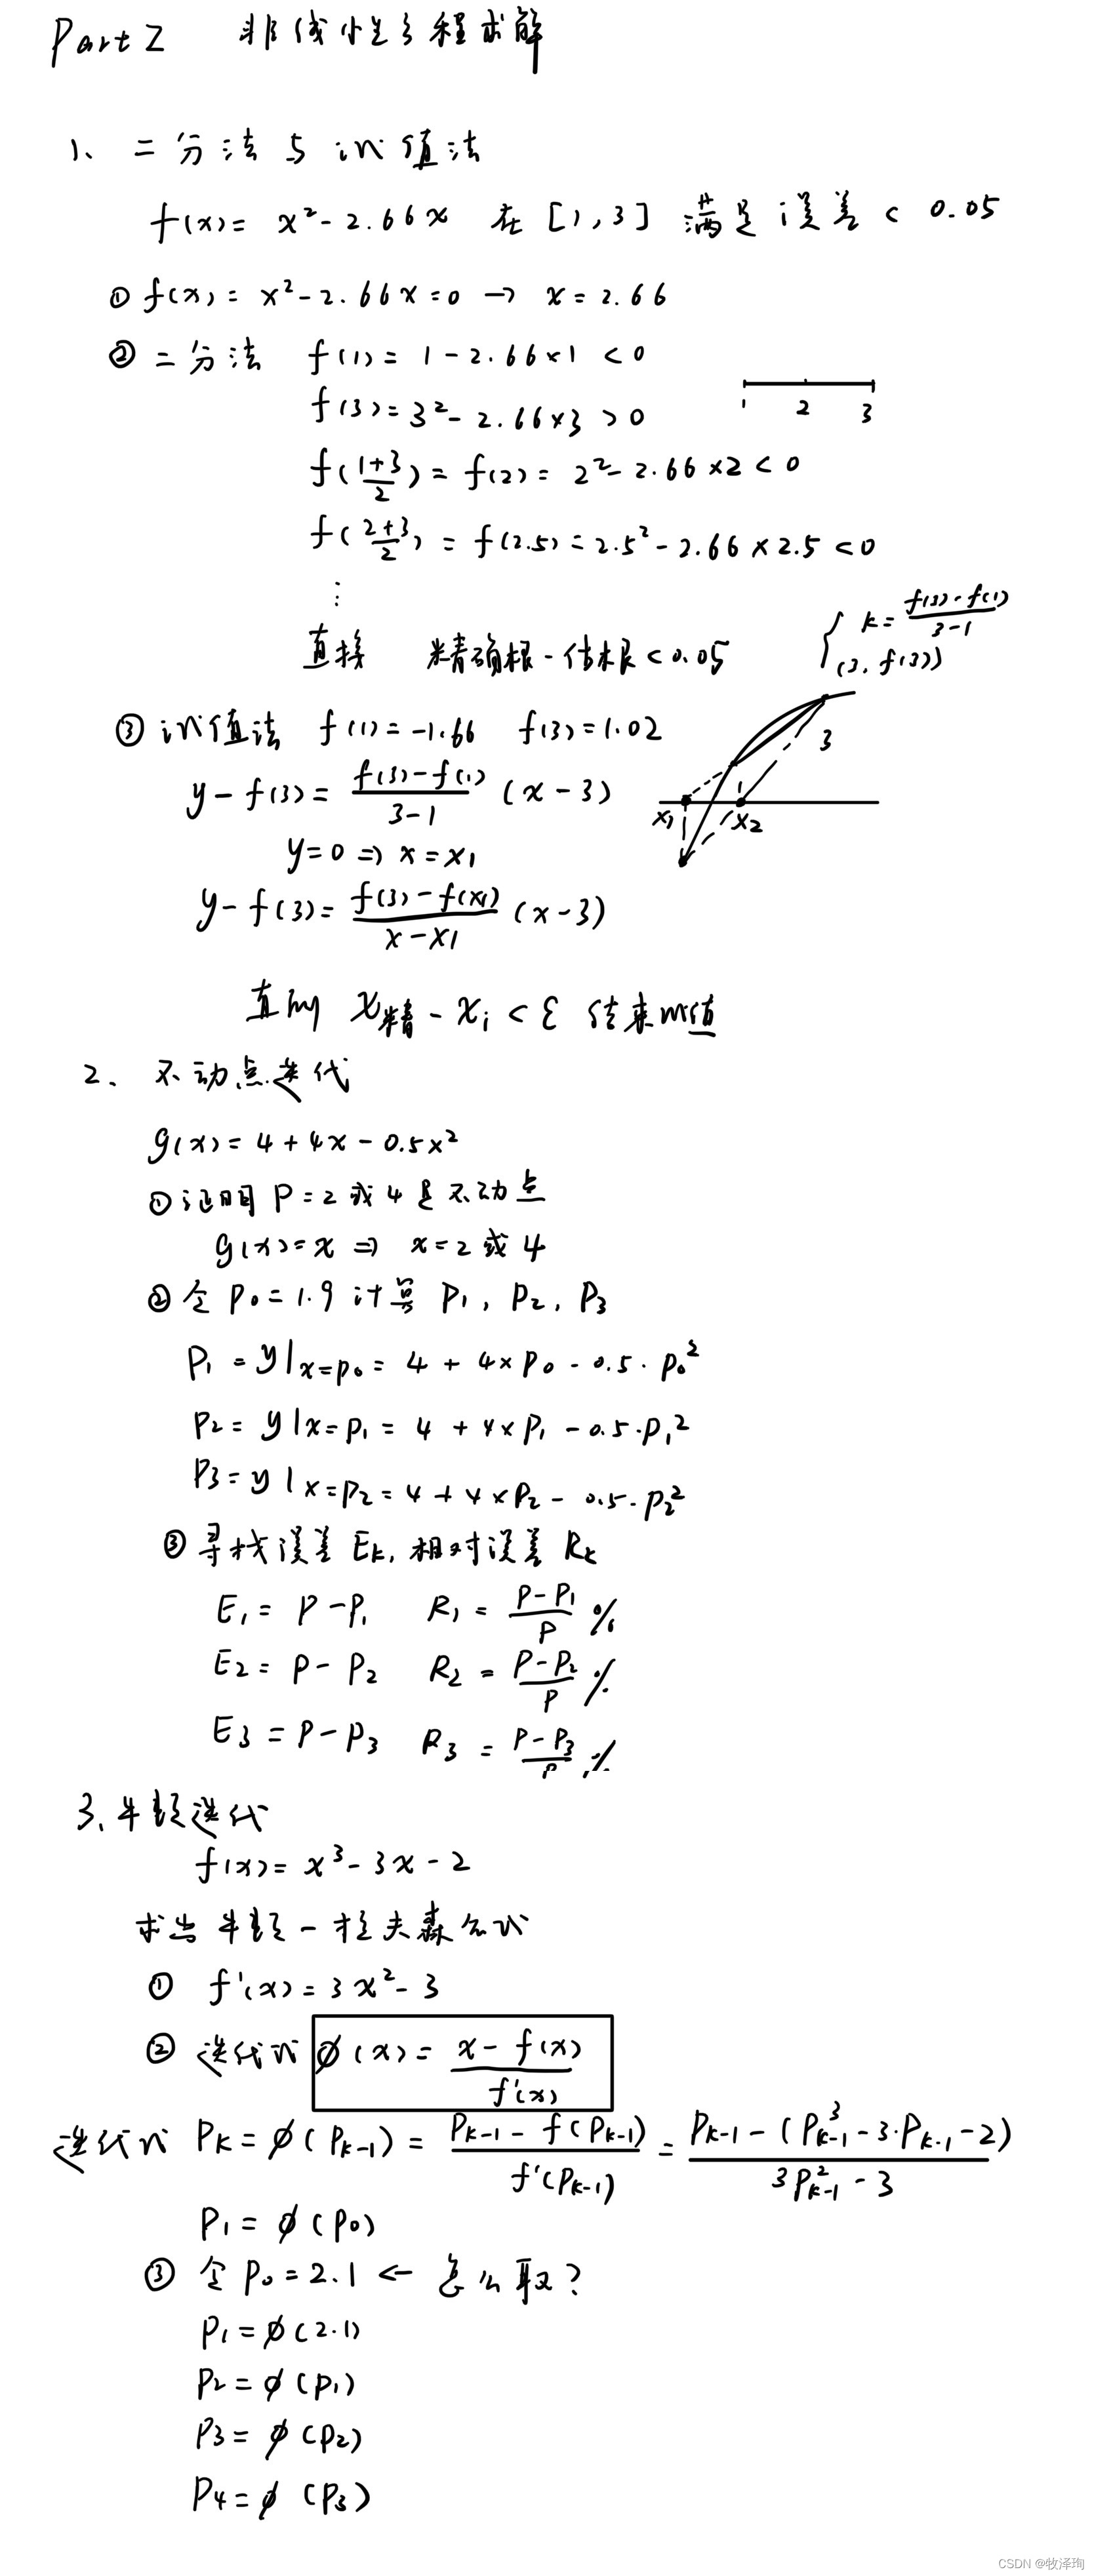 Part 2 非线性方程求解
1、二分法与试值法
f(x)= x²-2.66x 在[1,3] 满足误差 < 0.05
① f(x)= x²-2.66x=0 → x=2.66
② 二分法 f(1)= 1-2.66×1 <0
f(3)=3²-2.66×3 >0
1 2 3
f(\frac{1+3}{2})= f(2)= 2²-2.66×2<0
f(\frac{2+3}{2})= f(2.5)=2.5²-2.66×2.5<0
⋮
{ k=\frac{f(3)-f(1)}{3-1}
(3, f(3))
直接 精确根-估根<0.05
③ 试值法 f(1)=-1.66 f(3)=1.02
3
y-f(3)=\frac{f(3)-f(1)}{3-1}(x-3)
x₁ x₂
y=0 ⇒ x=x₁
y-f(3)=\frac{f(3)-f(x₁)}{x-x₁}(x-3)
直到 x精-xᵢ<ε 结束试值
2、不动点迭代
g(x)=4+4x-0.5x²
①证明 P=2或4是不动点
g(x)=x ⇒ x=2或4
②令P₀=1.9计算 P₁, P₂, P₃
P₁=y|x=p₀=4+4×P₀-0.5·P₀²
P₂=y|x=p₁=4+4×P₁-0.5·P₁²
P₃=y|x=p₂=4+4×P₂-0.5·P₂²
③寻找误差Eₖ,相对误差Rₖ
E₁=P-P₁ R₁=\frac{P-P₁}{P}%
E₂=P-P₂ R₂=\frac{P-P₂}{P}%
E₃=P-P₃ R₃=\frac{P-P₃}{P}%
3、牛顿迭代
f(x)=x³-3x-2
求出牛顿-拉夫森公式
① f'(x)=3x²-3
② 迭代式 ø(x)=\frac{x-f(x)}{f'(x)}
迭代式 Pₖ=ø(Pₖ₋₁)=\frac{Pₖ₋₁-f(Pₖ₋₁)}{f'(Pₖ₋₁)}=\frac{Pₖ₋₁-(Pₖ₋₁³-3·Pₖ₋₁-2)}{3Pₖ₋₁²-3}
P₁=ø(P₀)
③ 令P₀=2.1 ← 怎么取?
P₁=ø(2.1)
P₂=ø(P₁)
P₃=ø(P₂)
P₄=ø(P₃)
CSDN @牧泽珣